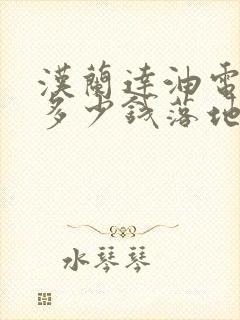 漢蘭達油電
多少錢落地
水琴琴